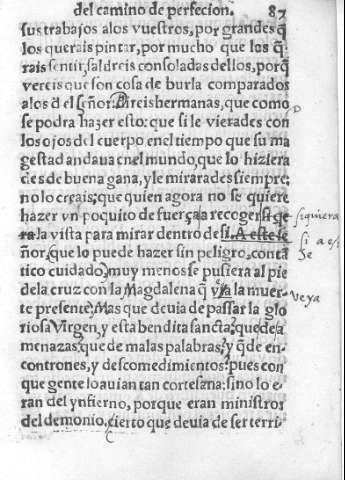 del camino de perfecion. 87
sus trabajos a los vuestros, por grandes q̃
los querais pintar, por mucho que los q̃-
rais sentir, saldreis consoladas dellos, porq̃
vereis que son cosa de burla comparados
a los d̃ el señor. Direis hermanas, que como
se podra hazer esto: que si le vierades con
los ojos del cuerpo en el tiempo que su ma
gestad andaua en el mundo, que lo hiziera
des de buena gana, y le mirarades siempre;
no lo creais; que quien agora no se quiere
hazer vn poquito de fuerça a recoger si que siquiera
ra la vista para mirar dentro de si. A este se si a es
ñor, que lo puede hazer sin peligro, con ta se
tico cuidado, muy menos se pusiera al pie
de la cruz con la Magdalena q̃ vya la muer-
te presente. Mas que deuia de passar la glo veya
riosa Virgen, y esta bendita sancta? que de a
menazas: que de malas palabras? y q̃ de en
contrones, y descomedimientos? pues con
que gente lo auian tan cortesana: sino lo e-
ran del ynfierno, porque eran ministros
del demonio. cierto que deuia de ser terri-